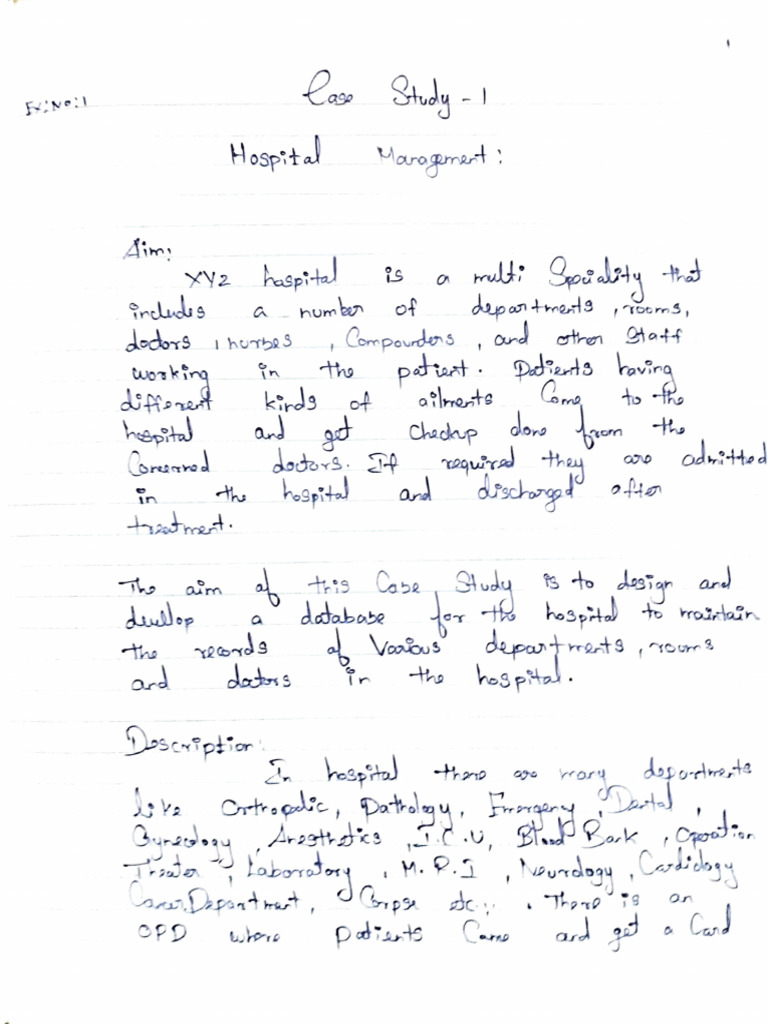 1
Ex:No:1
Case Study - 1
Hospital Management:
Aim:
XYZ hospital is a multi Speciality that
includes a number of departments, rooms,
doctors, nurses, Compounders, and other Staff
working in the patient. Patients having
different kinds of ailments Come to the
hospital and get checkup done from the
Concerned doctors. If required they are admitted
in the hospital and discharged after
treatment.
The aim of this Case Study is to design and
develop a database for the hospital to maintain
the records of Various departments, rooms
and doctors in the hospital.
Description:
In hospital there are many departments
like Orthopedic, Pathology, Emergency, Dental,
Gynecology, Anesthetics, I.C.U, Blood Bank, Operation
Theater, Laboratory, M.R.I, Neurology, Cardiology
Cancer Department, Corpse etc.. There is an
OPD where patients Came and get a Card